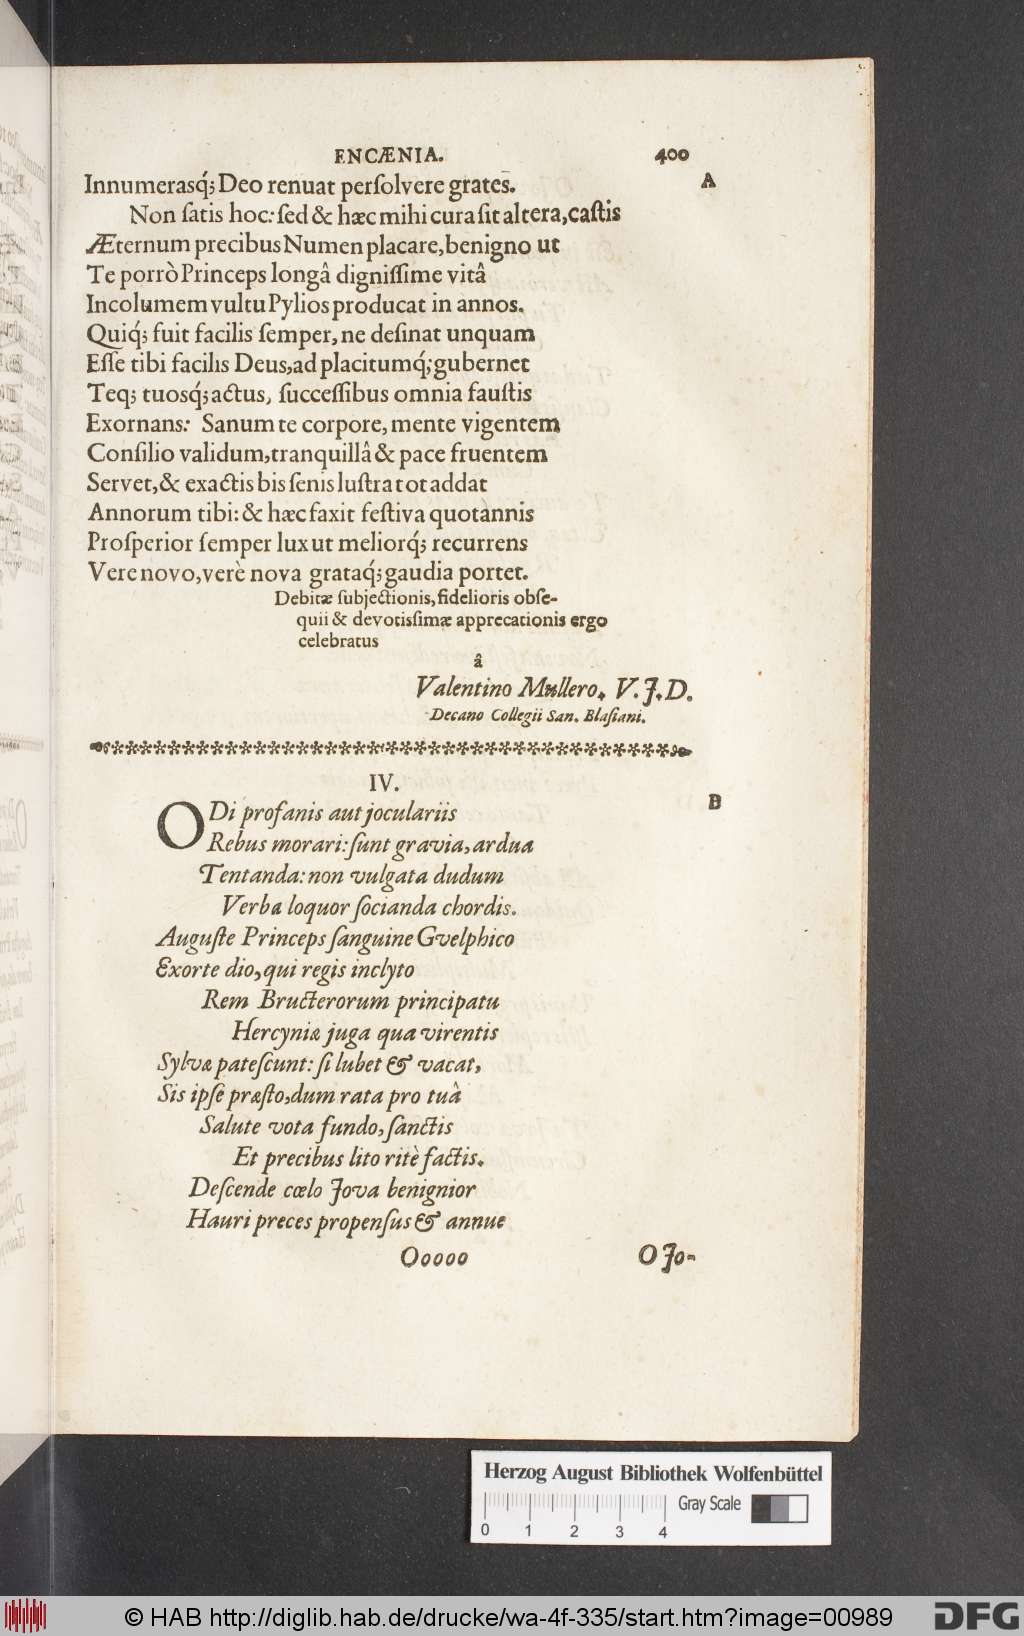 ENCÆNIA. 400
Innumerasq́; Deo renuat perſolvere grates̄. A
Non ſatis hoc: ſed & hæc mihi cura ſit altera, caſtis
Æternum precibus Numen placare, benigno ut
Te porrò Princeps longâ digniſſime vitâ
Incolumem vultu Pylios producat in annos.
Quiq́; fuit facilis ſemper, ne deſinat unquam
Eſſe tibi facilis Deus, ad placitumq́; gubernet
Teq; tuosq́; actus, ſucceſſibus omnia fauſtis
Exornans: Sanum te corpore, mente vigentem
Conſilio validum, tranquillâ & pace fruentem
Servet, & exactis bis ſenis luſtra tot addat
Annorum tibi: & hæc faxit feſtiva quotannis
Proſperior ſemper lux ut meliorq́; recurrens
Vere novo, verè nova grataq́; gaudia portet.
Debitæ ſubjectionis, fidelioris obſe-
quii & devotiſsimæ apprecationis ergo
celebratus
â
Valentino Mullero. V. J. D.
Decano Collegii San. Blaſiani.
IV.
ODi profanis aut joculariis B
Rebus morari: ſunt gravia, ardua
Tentanda: non vulgata dudum
Verba loquor ſocianda chordis.
Auguſte Princeps ſanguine Gvelphico
Exorte dio, qui regis inclyto
Rem Bructerorum principatu
Hercyniæ juga qua virentis
Sylvæ pateſcunt: ſi lubet & vacat,
Sis ipſe præſto, dum rata pro tuâ
Salute vota fundo, ſanctis
Et precibus lito ritè factis.
Deſcende cœlo Jova benignior
Hauri preces propenſus & annue
Ooooo O Jo-
Herzog August Bibliothek Wolfenbüttel
Gray Scale
0 1 2 3 4
© HAB http://diglib.hab.de/drucke/wa-4f-335/start.htm?image=00989 DFG